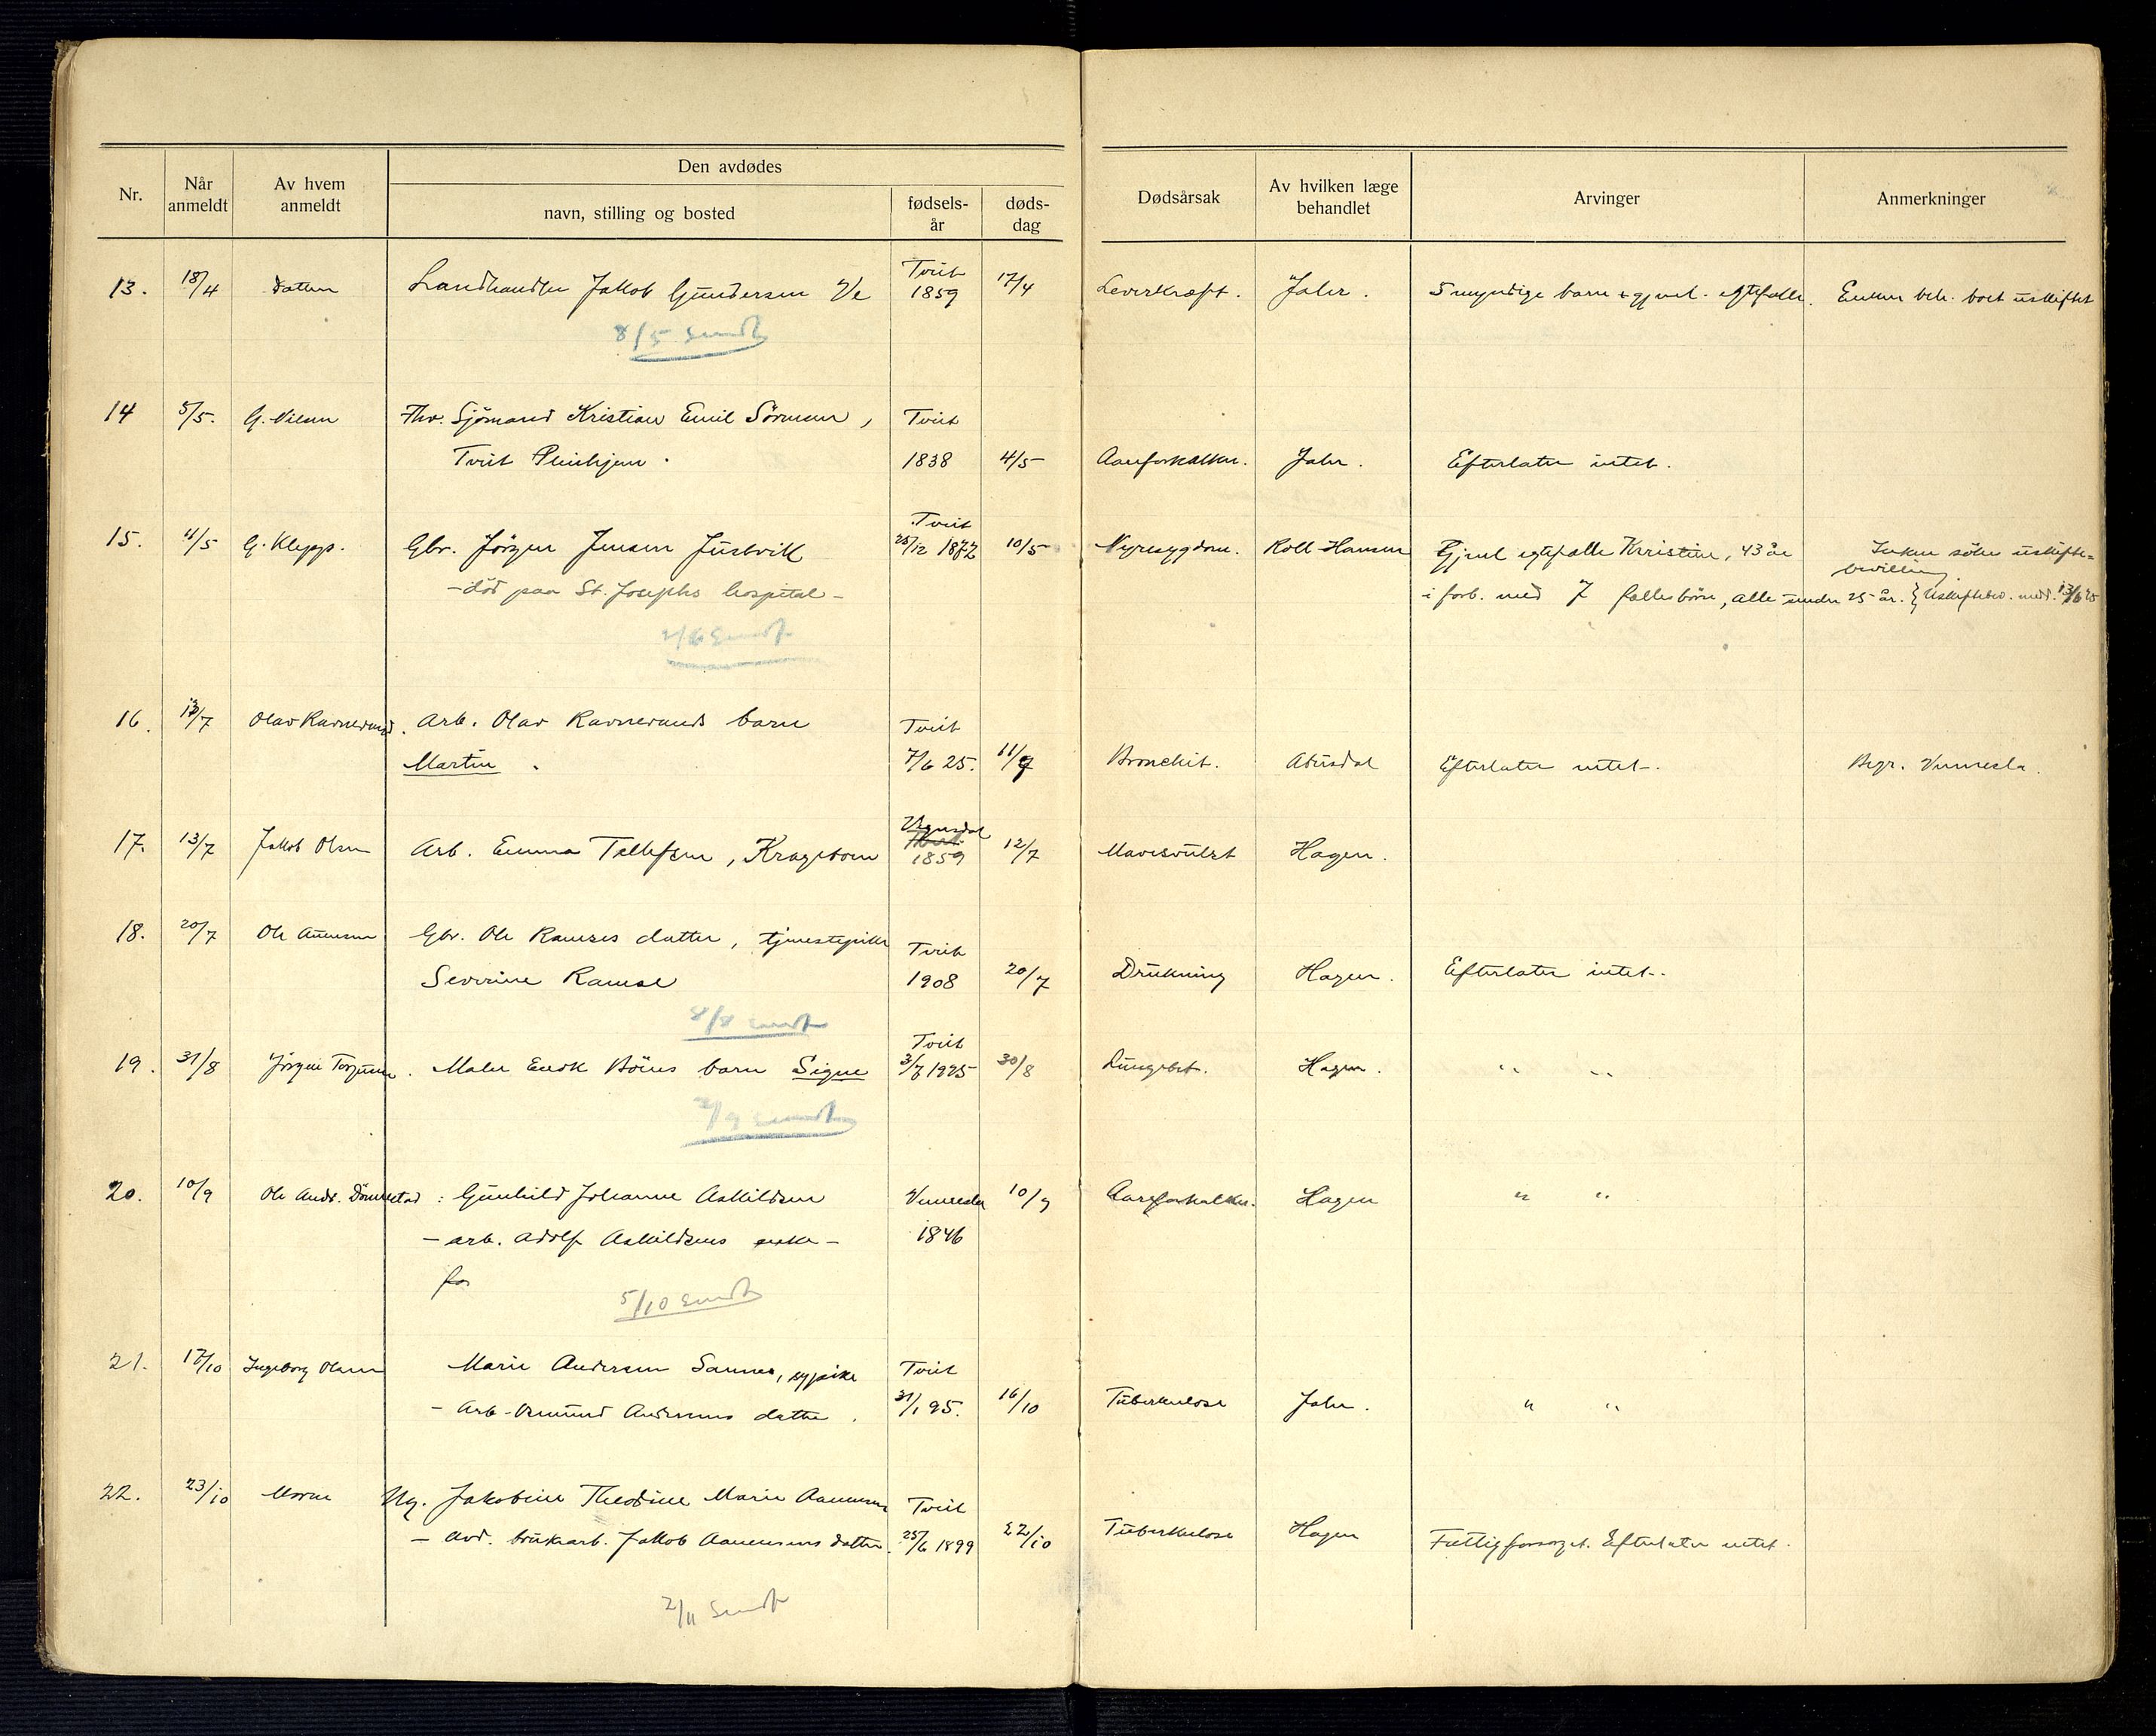 Den avdødes
Nr. Når anmeldt Av hvem anmeldt navn, stilling og bosted fødsels-år døds-dag Dødsårsak Av hvilken læge behandlet Arvinger Anmerkninger
13. 18/4 Landhandler Jakob Gundersen Ve Tveit 1859 17/4 Leverkræft. Jahr. 5 myndige barn + gjenl. egtefelle. Enken beh. boet uskiftet
8/5 sendt
14 5/5. G. Fhv. Sjömand Kristian Emil Sörensen, Tveit
Tveit Pleiehjem. 1838 4/5 Aareforkalkn. Jahr. Efterlater intet.
15. 11/5 G. Klepp. Gbr. Jörgen Jensen Justvik Tveit 25/12 1877 10/5 Nyresygdom. Roll-Hansen Gjenl egtefelle Kristine, 43 år Enken söker uskifte=
bevilling
-död paa St. Josephs hospital- i forb. med 7 fællesbörn, alle under 25 år. } Uskiftebev. medd. 13/6 25
2/6 sendt
16. 13/7 Olav Ravnevand. Arb. Olav Ravnevands barn Tveit
Martin. 7/6 25. 11/7 Bronchit. Efterlater intet. Begr. Vennesla.
17. 13/7 Jakob Olsen Arb. Emma Tellefsen, Krageboen 1859 12/7 Mavesvulst Hagen.
18. 20/7 Ole Gbr. Ole Ramses datter, tjenestepike Tveit
Severine Ramse 1908 20/7 Drukning Hagen. Efterlater intet.
8/8 sendt
19. 31/8 Jörgen Maler Enok Böens barn Signe Tveit 3/7 1925 30/8 Lungebet. Hagen. " "
/9 sendt
20. 10/9 Ole Andr. Dönnestad: Gunhild Johanne Askildsen Vennesla 10/9 Aareforkalkn. Hagen " "
- arb. Adolf Askildsens enke - 1846
fra
5/10 sendt
21. 17/10 Ingeborg Olsen Marie Andersen Sannes, sypike Tveit
- Arb. Andersens datter. 31/1 95. 16/10 Tuberkulose Jahr. " "
22. 23/10 Moren Ug. Jakobine Theodine Marie Aanensen Tveit
- avd. bruksarb. Jakob Aanensens datter. 25/6 1899 22/10 Tuberkulose Hagen Fattigforsorget. Efterlater intet.
2/11 sendt